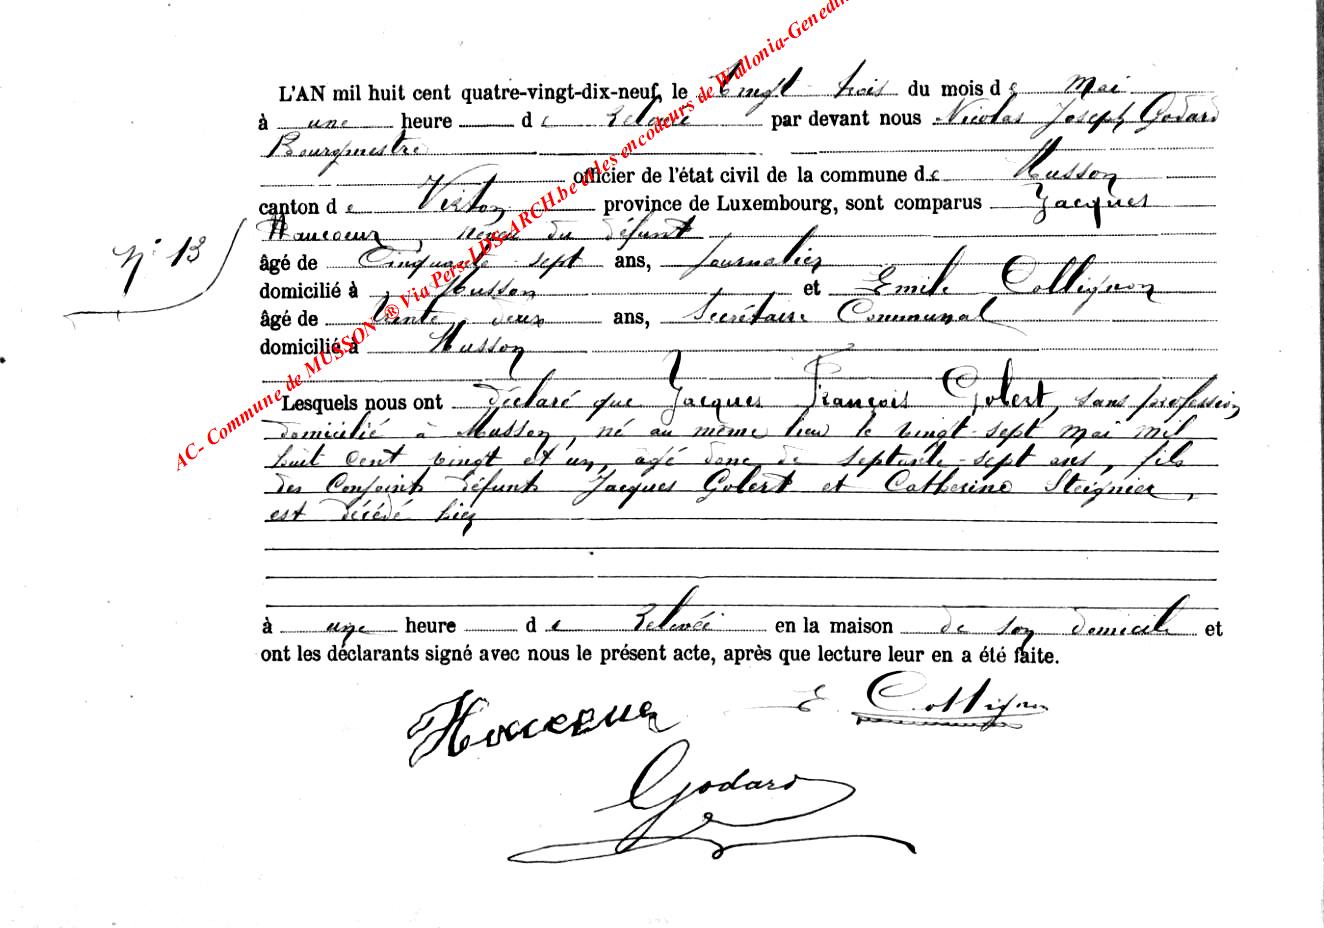 AC- Commune de MUSSON ® Via Pers-LDS-ARCH.be et les encodeurs de Wallonia-Genedin
L'AN mil huit cent quatre-vingt-dix-neuf, le Vingt trois du mois de Mai
à une heure de Relevée par devant nous Nicolas Joseph Godard
Bourgmestre
officier de l'état civil de la commune de Musson
canton de Virton province de Luxembourg, sont comparus Jacques
neveu du défunt
N° 13
âgé de Cinquante sept ans, Journalier
domicilié à Musson et Emile Collignon
âgé de trente deux ans, Secrétaire Communal
domicilié à Musson
Lesquels nous ont déclaré que Jacques François Golert, sans profession,
domicilié à Musson, né au même lieu le vingt-sept mai mil
huit cent vingt et un, agé donc de septante-sept ans, fils
des Conjoints défunts Jacques Golert et Catherine Steignier,
est décédé hier
à une heure de Relevée en la maison de son domicile et
ont les déclarants signé avec nous le présent acte, après que lecture leur en a été faite.
E Collignon
Godard